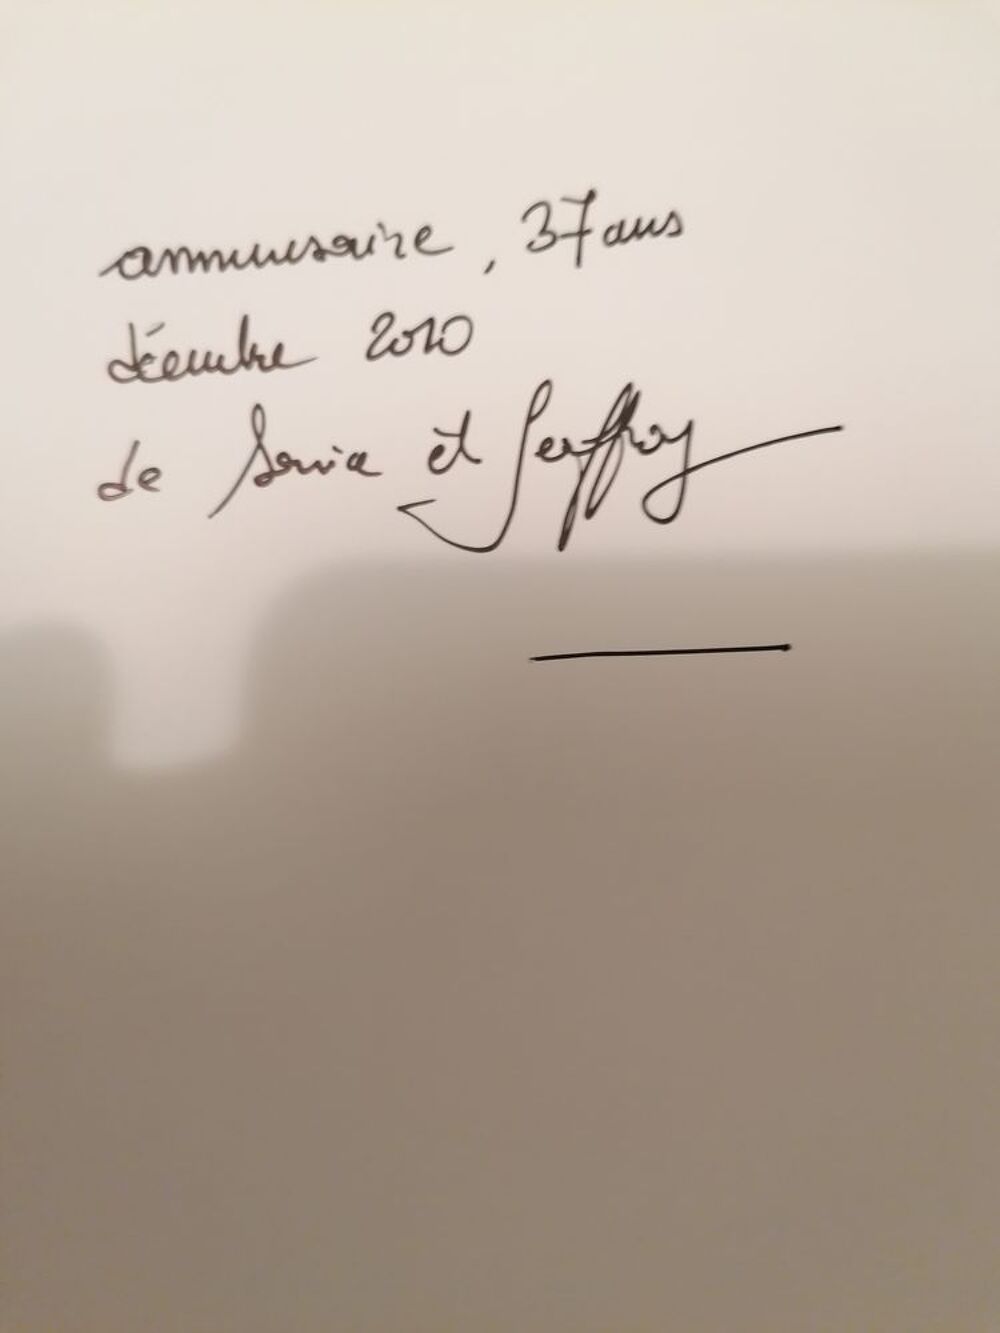 anniversaire, 37 ans
décembre 2010
de Sonia et Jeoffroy